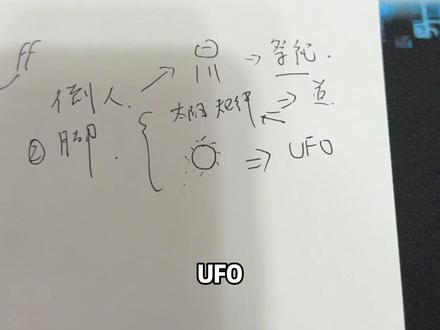 ff
→ 祭祀.
倒人.
太阳规律 => 道
② 脚.
=> UFO
UFO